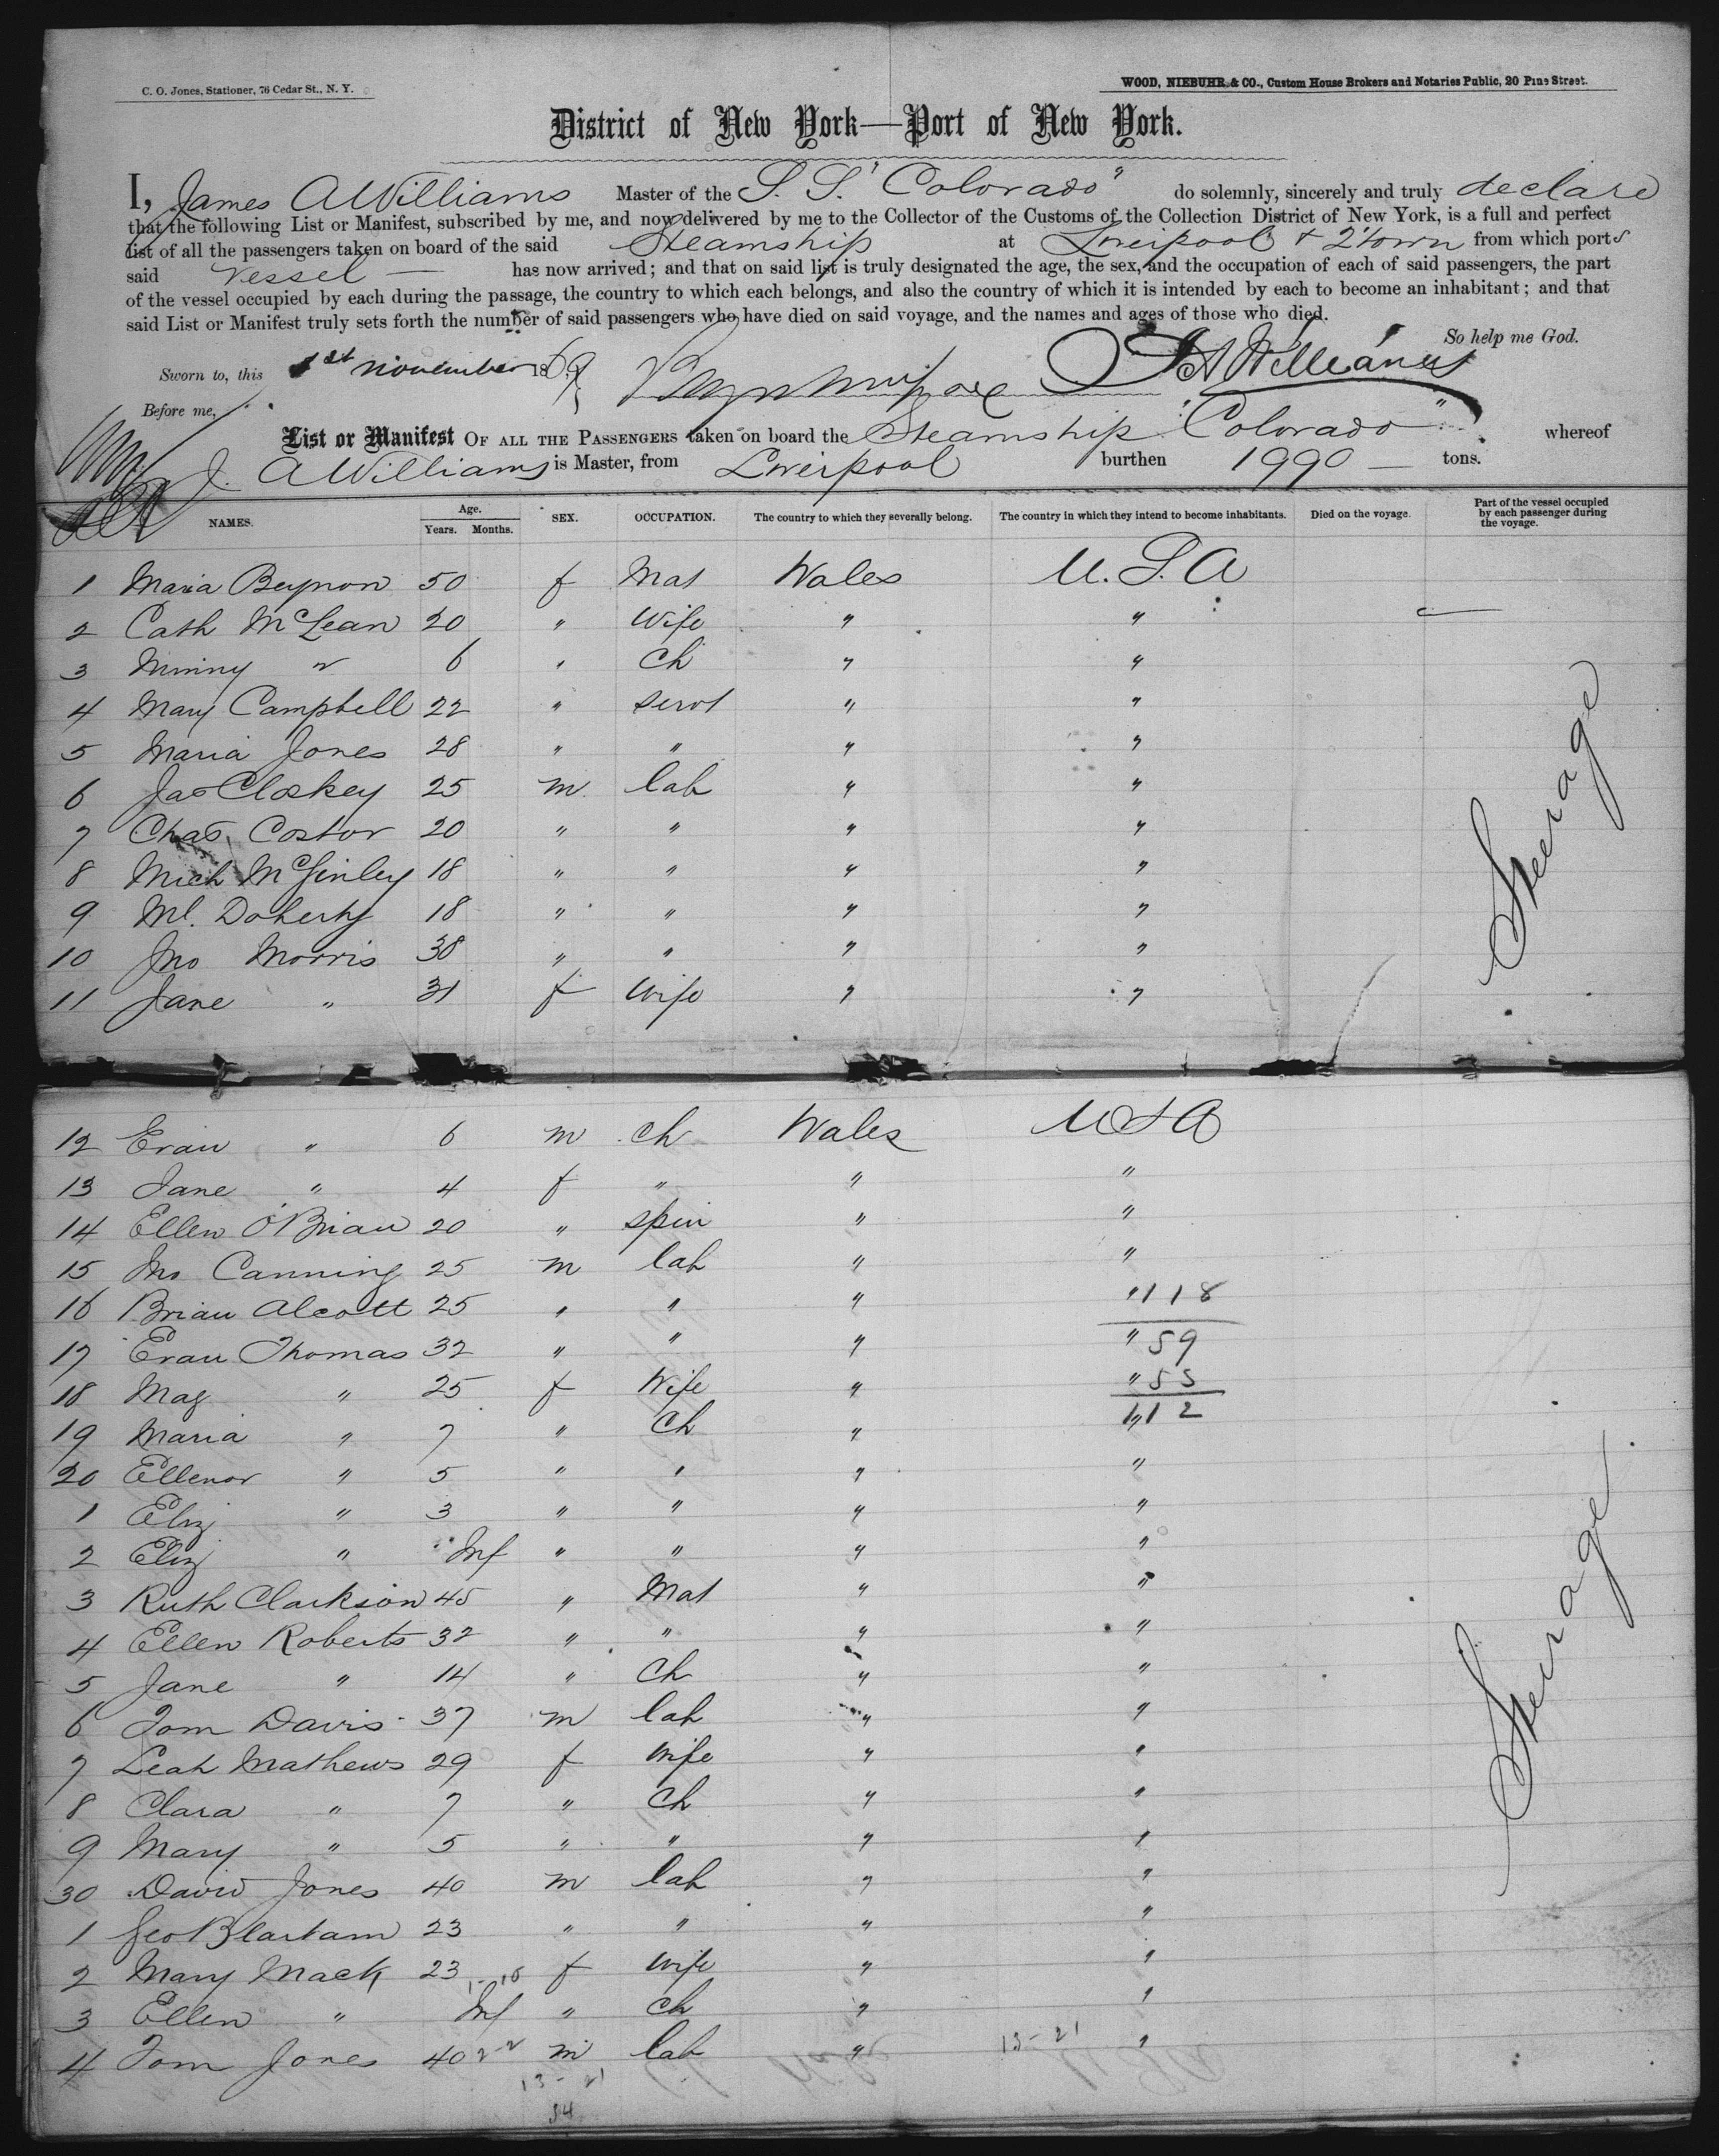 C. O. Jones, Stationer, 76 Cedar St., N. Y.
WOOD, NIEBUHR & CO., Custom House Brokers and Notaries Public, 20 Pine Street.
District of New York—Port of New York.
I, James A Williams Master of the S. S. "Colorado" do solemnly, sincerely and truly declare
that the following List or Manifest, subscribed by me, and now delivered by me to the Collector of the Customs of the Collection District of New York, is a full and perfect
list of all the passengers taken on board of the said Steamship at Liverpool & Q'town from which ports
said Vessel — has now arrived; and that on said list is truly designated the age, the sex, and the occupation of each of said passengers, the part
of the vessel occupied by each during the passage, the country to which each belongs, and also the country of which it is intended by each to become an inhabitant; and that
said List or Manifest truly sets forth the number of said passengers who have died on said voyage, and the names and ages of those who died.
So help me God.
Sworn to, this 1st November 1869 J A Williams
Before me,
List or Manifest OF ALL THE PASSENGERS taken on board the Steamship "Colorado" whereof
J. A Williams is Master, from Liverpool burthen 1990 — tons.
NAMES. Age. Years. Months. SEX. OCCUPATION. The country to which they severally belong. The country in which they intend to become inhabitants. Died on the voyage. Part of the vessel occupied by each passenger during the voyage.
1 Maria Beynon 50 f Mat Wales U. S. A
2 Cath McLean 20 " Wife " "
3 Minny " 6 " Ch " "
4 Mary Campbell 22 " servt " "
5 Maria Jones 28 " " " "
6 Jas Closkey 25 m lab " "
7 Chas Costor 20 " " " "
8 Mich McGinley 18 " " " "
9 Ml. Doherty 18 " " " "
10 Jno Morris 38 " " " "
11 Jane " 31 f Wife " "
Steerage
12 Evan " 6 m ch Wales U S A
13 Jane " 4 f " " "
14 Ellen O'Brian 20 " spin " "
15 Jno Canning 25 m lab " "
16 Brian Alcott 25 " " " " 118
17 Evan Thomas 32 " " " " 59
18 Mag " 25 f Wife " " 53
19 Maria " 7 " Ch " " 112
20 Ellenor " 5 " " " "
1 Eliz " 3 " " " "
2 Eliz " Inf " " " "
3 Ruth Clarkson 45 " Mat " "
4 Ellen Roberts 32 " " " "
5 Jane " 14 " Ch " "
6 Tom Davis 37 m lab " "
7 Leah Mathews 29 f Wife " "
8 Clara " 7 " Ch " "
9 Mary " 5 " " " "
30 David Jones 40 m lab " "
1 Geo Blartam 23 " " " "
2 Mary Mack 23 f Wife " "
3 Ellen " Inf " Ch " "
4 Tom Jones 40 2-2 m lab " 13-21 "
13-21
34
Steerage